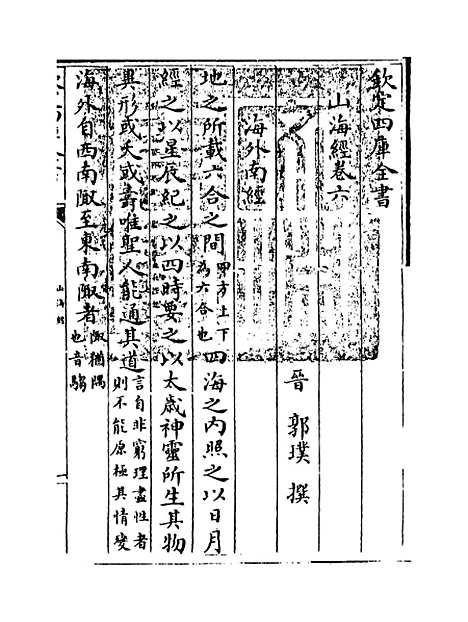 欽定四庫全書
山海經卷六
晉 郭璞 撰
海外南經
地之所載六合之間四方上下為六合也四海之内照之以日月
經之以星辰紀之以四時要之以太歲神靈所生其物
異形或夭或壽唯聖人能通其道言自非窮理盡性者則不能原極其情變
海外自西南陬至東南陬者陬猶隅也音騶
山海經